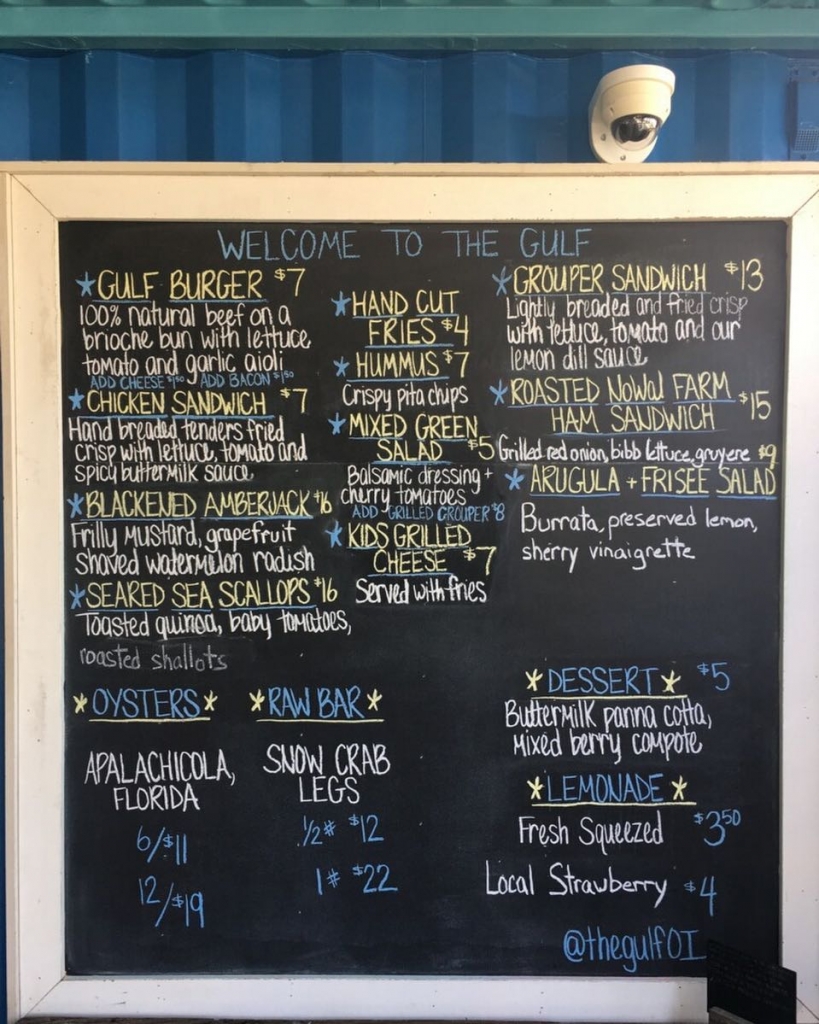 WELCOME TO THE GULF
*GULF BURGER $7
100% natural beef on a
brioche bun with lettuce
tomato and garlic aioli
ADD CHEESE $1.50 ADD BACON $1.50
*CHICKEN SANDWICH $7
Hand breaded tenders fried
crisp with lettuce, tomato and
spicy buttermilk sauce
*BLACKENED AMBERJACK $16
Frilly mustard, grapefruit
Shaved watermelon radish
*SEARED SEA SCALLOPS $16
Toasted quinoa, baby tomatoes,
roasted shallots
*HAND CUT
FRIES $4
*HUMMUS $7
Crispy pita chips
*MIXED GREEN
SALAD $5
Balsamic dressing +
cherry tomatoes
ADD GRILLED GROUPER $8
*KIDS GRILLED
CHEESE $7
Served with fries
*GROUPER SANDWICH $13
Lightly breaded and fried crisp
with lettuce, tomato and our
lemon dill sauce
*ROASTED NOWAL FARM
HAM SANDWICH $15
Grilled red onion, bibb lettuce, gruyere
*ARUGULA + FRISEE SALAD $9
Burrata, preserved lemon,
sherry vinaigrette
*OYSTERS*
APALACHICOLA,
FLORIDA
6/$11
12/$19
*RAW BAR*
SNOW CRAB
LEGS
1/2# $12
1# $22
*DESSERT* $5
Buttermilk panna cotta,
mixed berry compote
*LEMONADE*
Fresh Squeezed $3.50
Local Strawberry $4
@thegulfOI